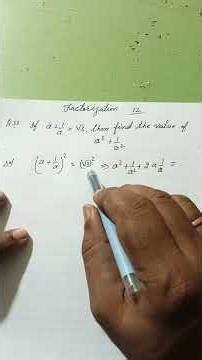 Factorization 12
If a+1/a = √3, then find the value of
a²+1/a²
(a+1/a)² = (√3)² ⇒ a²+1/a²+2a1/a =